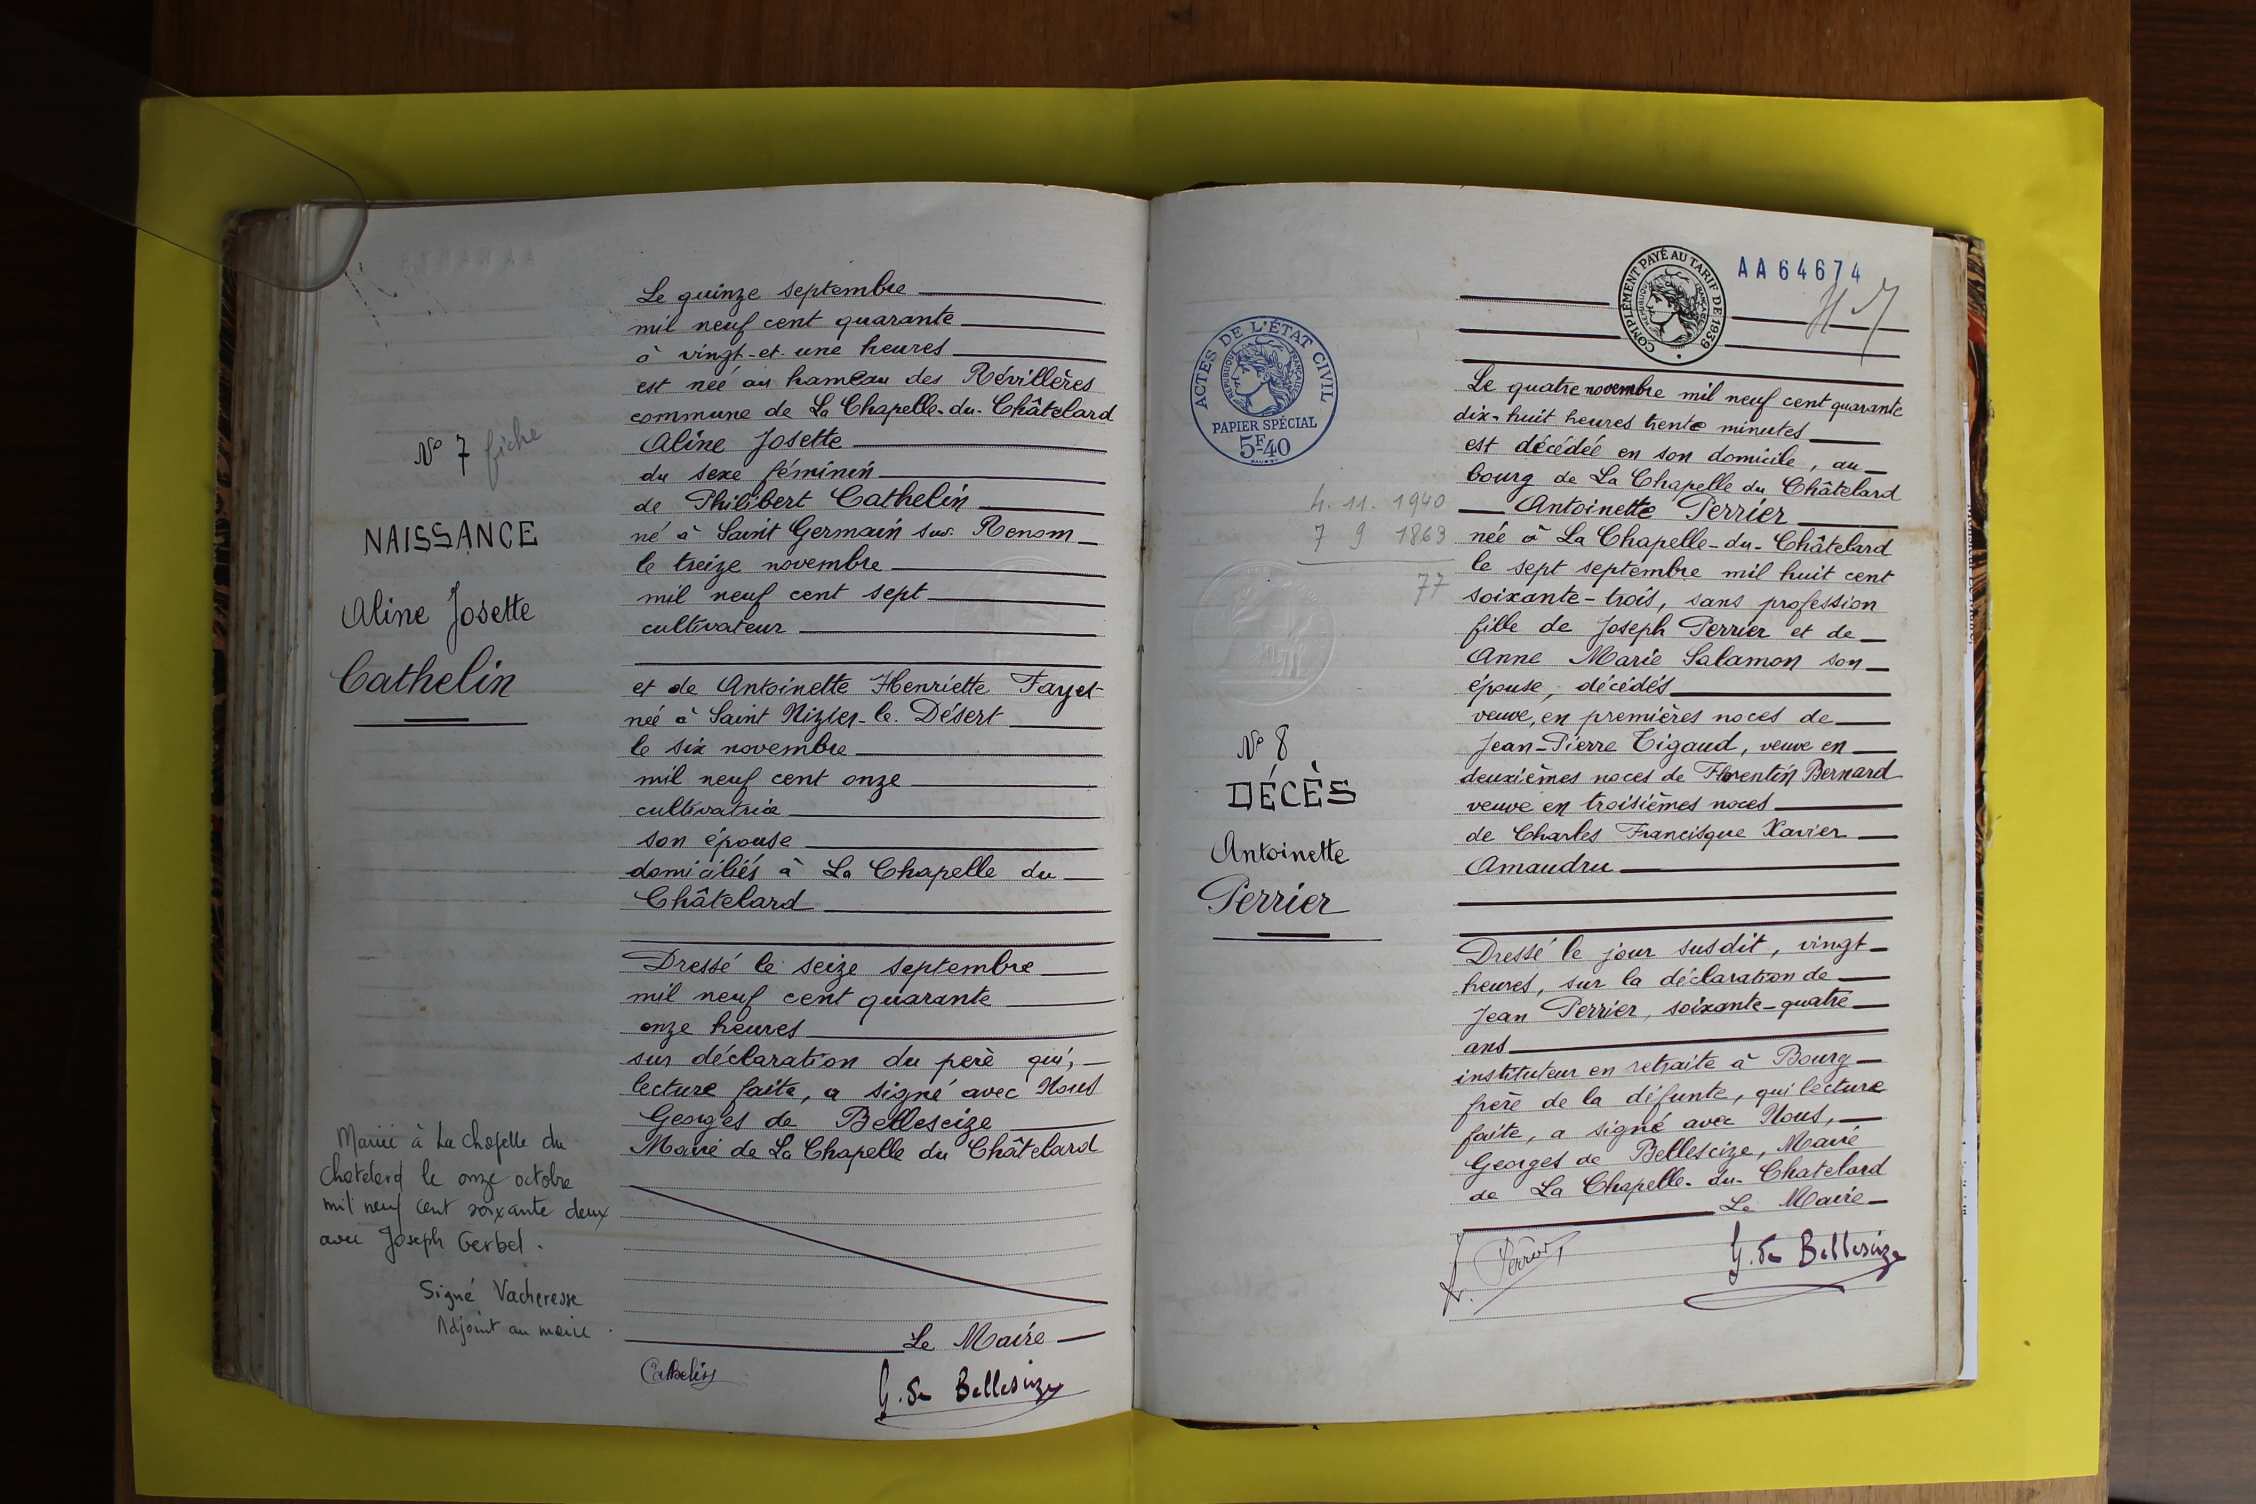 N° 7 fiche
NAISSANCE
Aline Josette
Cathelin
Le quinze septembre
mil neuf cent quarante
à vingt-et-une heures
est née au hameau des Révillères
commune de La Chapelle-du-Châtelard
Aline Josette
du sexe féminin
de Philibert Cathelin
né à Saint Germain sur Renom
le treize novembre
mil neuf cent sept
cultivateur
et de Antoinette Henriette Fayet
née à Saint Nizier-le-Désert
le six novembre
mil neuf cent onze
cultivatrice
son épouse
domiciliés à La Chapelle du
Châtelard
Dressé le seize septembre
mil neuf cent quarante
onze heures
sur déclaration du père qui,
lecture faite, a signé avec Nous
Georges de Bellescize
Maire de La Chapelle du Châtelard
Le Maire
Cathelin
G. de Bellescize
Mariée à La Chapelle du
Chatelard le onze octobre
mil neuf cent soixante deux
avec Joseph Gerbel.
Signé Vacheresse
Adjoint au maire.
AA64674
COMPLÉMENT PAYÉ AU TARIF DE 1939
RÉPUBLIQUE FRANÇAISE
ACTES DE L'ÉTAT CIVIL
RÉPUBLIQUE FRANÇAISE
PAPIER SPÉCIAL
5F40
4. 11. 1940
7 9 1863
77
N° 8
DÉCÈS
Antoinette
Perrier
Le quatre novembre mil neuf cent quarante
dix-huit heures trente minutes
est décédée en son domicile, au
bourg de La Chapelle du Châtelard
Antoinette Perrier
née à La Chapelle-du-Châtelard
le sept septembre mil huit cent
soixante-trois, sans profession
fille de Joseph Perrier et de
Anne Marie Salamon son
épouse, décédés
veuve, en premières noces de
Jean-Pierre Tigaud, veuve en
deuxièmes noces de Florentin Bernard
veuve en troisièmes noces
de Charles Francisque Xavier
Amaudru
Dressé le jour susdit, vingt
heures, sur la déclaration de
Jean Perrier, soixante-quatre
ans
instituteur en retraite à Bourg
frère de la défunte, qui lecture
faite, a signé avec Nous,
Georges de Bellescize, Maire
de La Chapelle-du-Chatelard
Le Maire
J. Perrier
G. de Bellescize